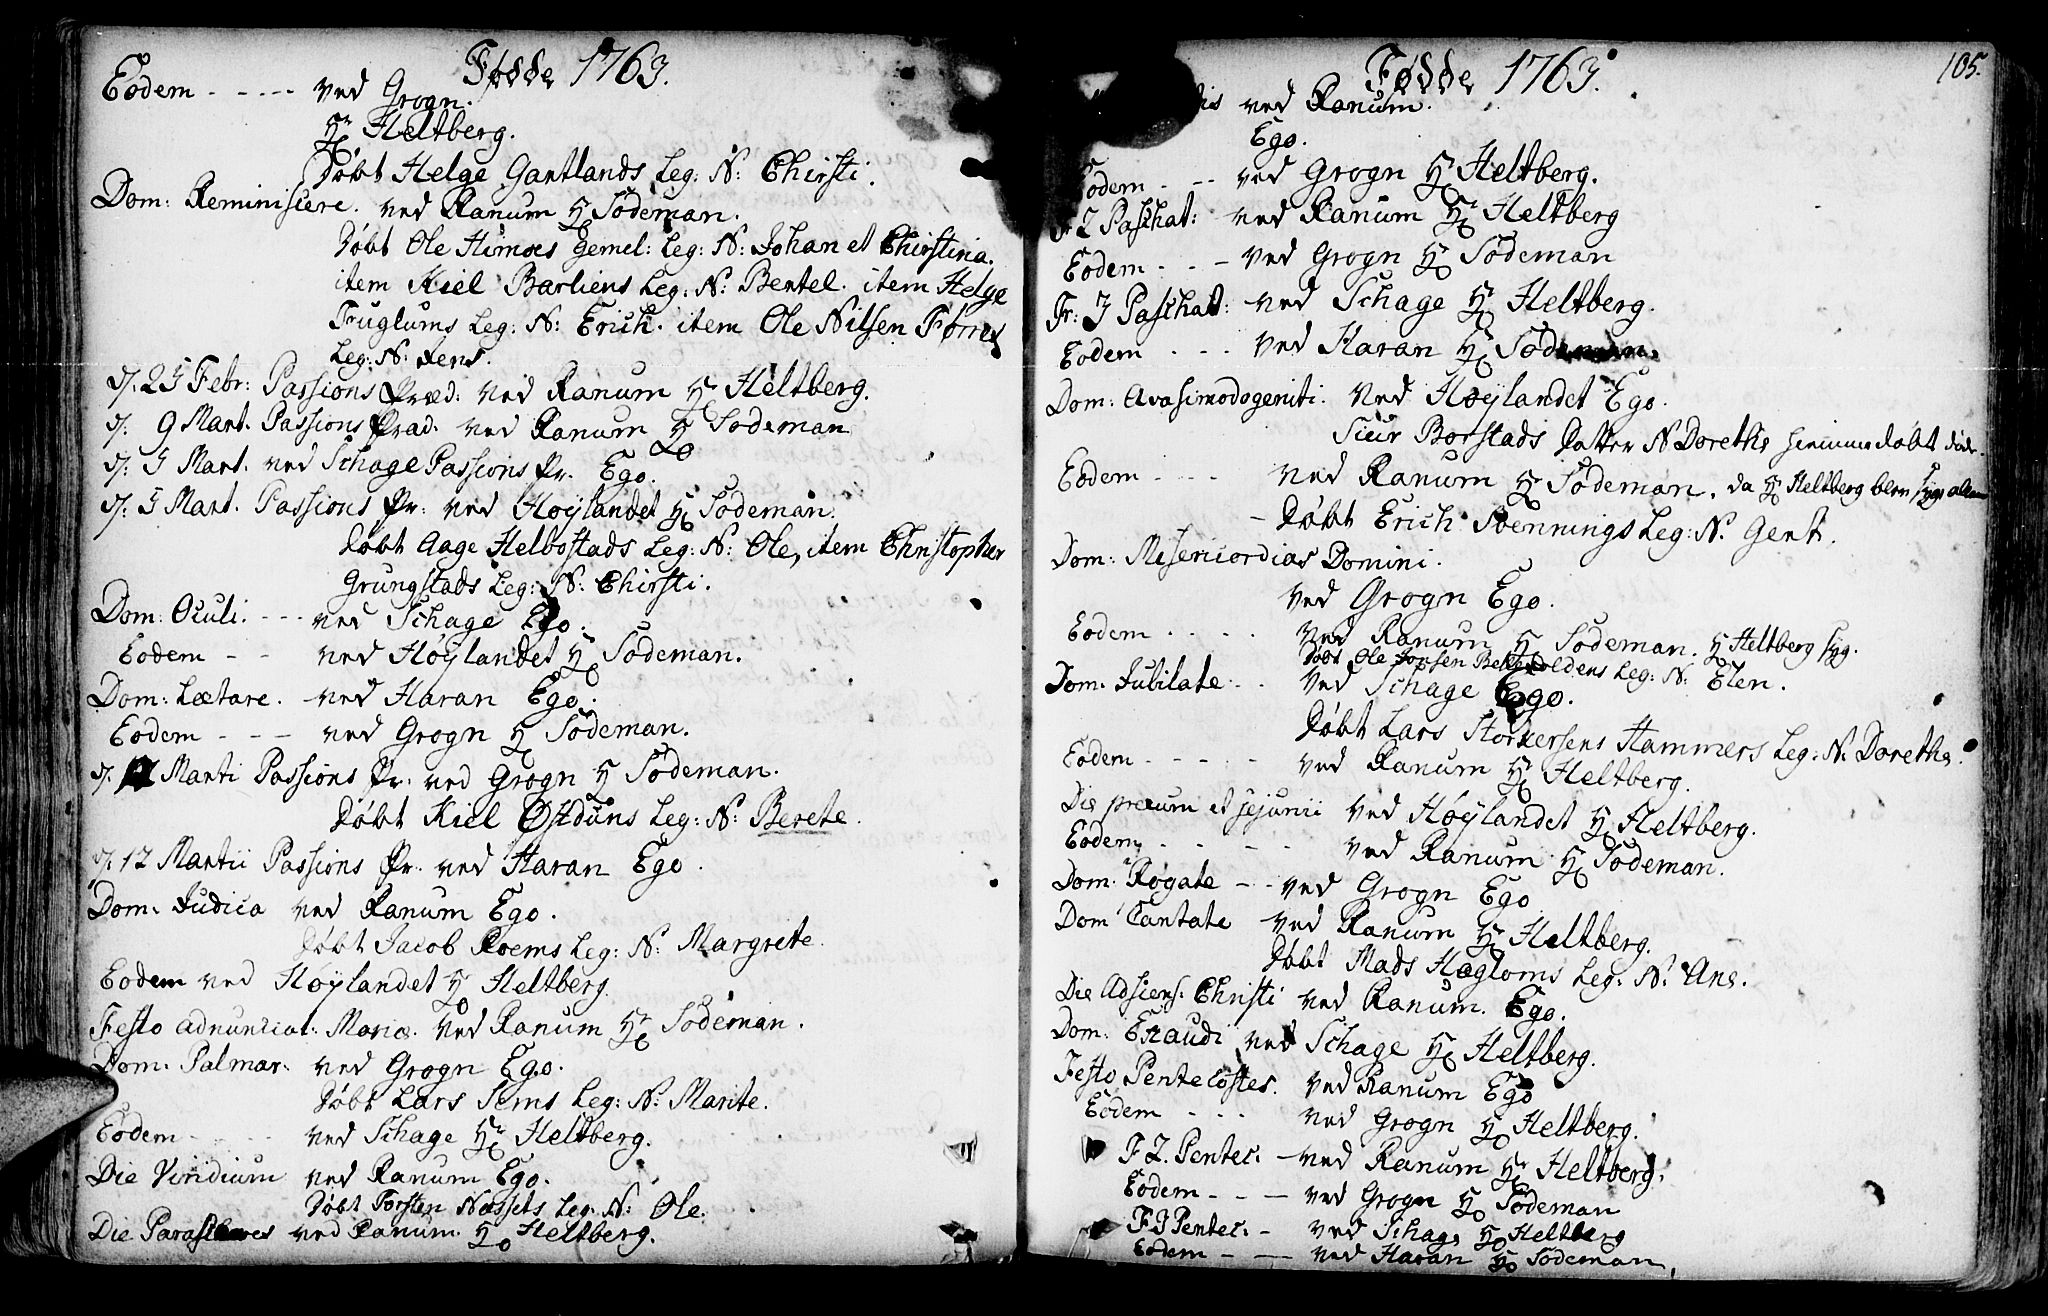 Fødde 1763.
Eodem - - - - ved Grogn.
Hr Heltberg.
Døbt Helge Gartlands Leg: N: Chirsti.
Dom: Reminiscere. ved Ranum Hr Sodeman.
Døbt Ole Himoes Gemel: Leg: N: Johan et Chirstina.
item Kiel Barliens Leg: N: Bentel. item Helge
Truglums Leg: N: Erich. item Ole Nilsen Førres
Leg: N: Jens.
d. 25 Febr: Passions Præd: ved Ranum Hr Heltberg.
d. 9 Mart. Passions Præd. ved Ranum Hr Sodeman
d. 3 Mart. ved Schage Passions Pr. Ego.
d. 5 Mart. Passions Pr: ved Høylandet Hr Sodeman.
Døbt Aage Helbostads Leg: N: Ole, item Christopher
Grungstads Leg: N: Chirsti.
Dom: Oculi. - - - ved Schage Ego.
Eodem - - ved Høylandet Hr Sodeman.
Dom: Lætare. - ved Haran Ego.
Eodem - - - ved Grogn Hr Sodeman.
d. Marti Passions Pr: ved Grogn Hr Sodeman.
Døbt Kiel Østduns Leg: N: Berete.
d. 17 Martii Passions Pr. ved Haran Ego.
Dom: Judica ved Ranum Ego.
Døbt Jacob Roems Leg: N: Margrete.
Eodem ved Høylandet Hr Heltberg.
Festo adnunciat: Mariæ. ved Ranum Hr Sodeman.
Dom: Palmar. ved Grogn Ego.
Døbt Lars Sems Leg: N: Marite.
Eodem - - - - ved Schage Hr Heltberg.
Die Viridium ved Ranum Ego.
Døbt Torsten Nossets Leg: N: Ole.
Die Parasceves ved Ranum Hr Heltberg.
105.
Fødde 1763.
ved Ranum.
Ego.
Eodem - - - ved Grogn Hr Heltberg.
Fr 2 Paschat: ved Ranum Hr Heltberg
Eodem - - - ved Grogn Hr Sodeman
Fr: 3 Paschat: ved Schage Hr Heltberg.
Eodem - - - ved Haran Hr Sodeman.
Dom: Qvasimodogeniti. ved Høylandet Ego.
Sieur Borstads Datter N Dorethe hiemmedøbt døde
Eodem - - - ved Ranum Hr Sodeman. da Hr Heltberg blev syg
- Døbt Erich Svennings Leg: N: Gert.
Dom: Misericordias Domini.
ved Grogn Ego.
Eodem - - - - ved Ranum Hr Sodeman. Hr Heltberg syg.
Døbt Ole Leg: N: Elen.
Dom: Jubilate - - ved Schage Ego.
Døbt Lars Storkersens Hammers Leg: N: Dorethe.
Eodem - - - - - ved Ranum Hr Heltberg.
Die precum et jejunii ved Høylandet Hr Heltberg.
Eodem - - - - ved Ranum Hr Sodeman.
Dom: Rogate - - ved Grogn Ego
Dom Cantate ved Ranum Hr Heltberg.
Døbt Mads Hagloms Leg: N: Ane.
Die Adscens: Christi ved Ranum. Ego.
Dom: Exaudi ved Schage Hr Heltberg.
Festo Pentecostes. ved Ranum Ego
Eodem - - - ved Grogn Hr Heltberg.
F 2. Pentec: - ved Ranum Hr Heltberg.
Eodem - - - ved Grogn Hr Sodeman
F 3 Pentec: - ved Schage Hr Heltberg
Eodem - - - ved Haran Hr Sodeman.